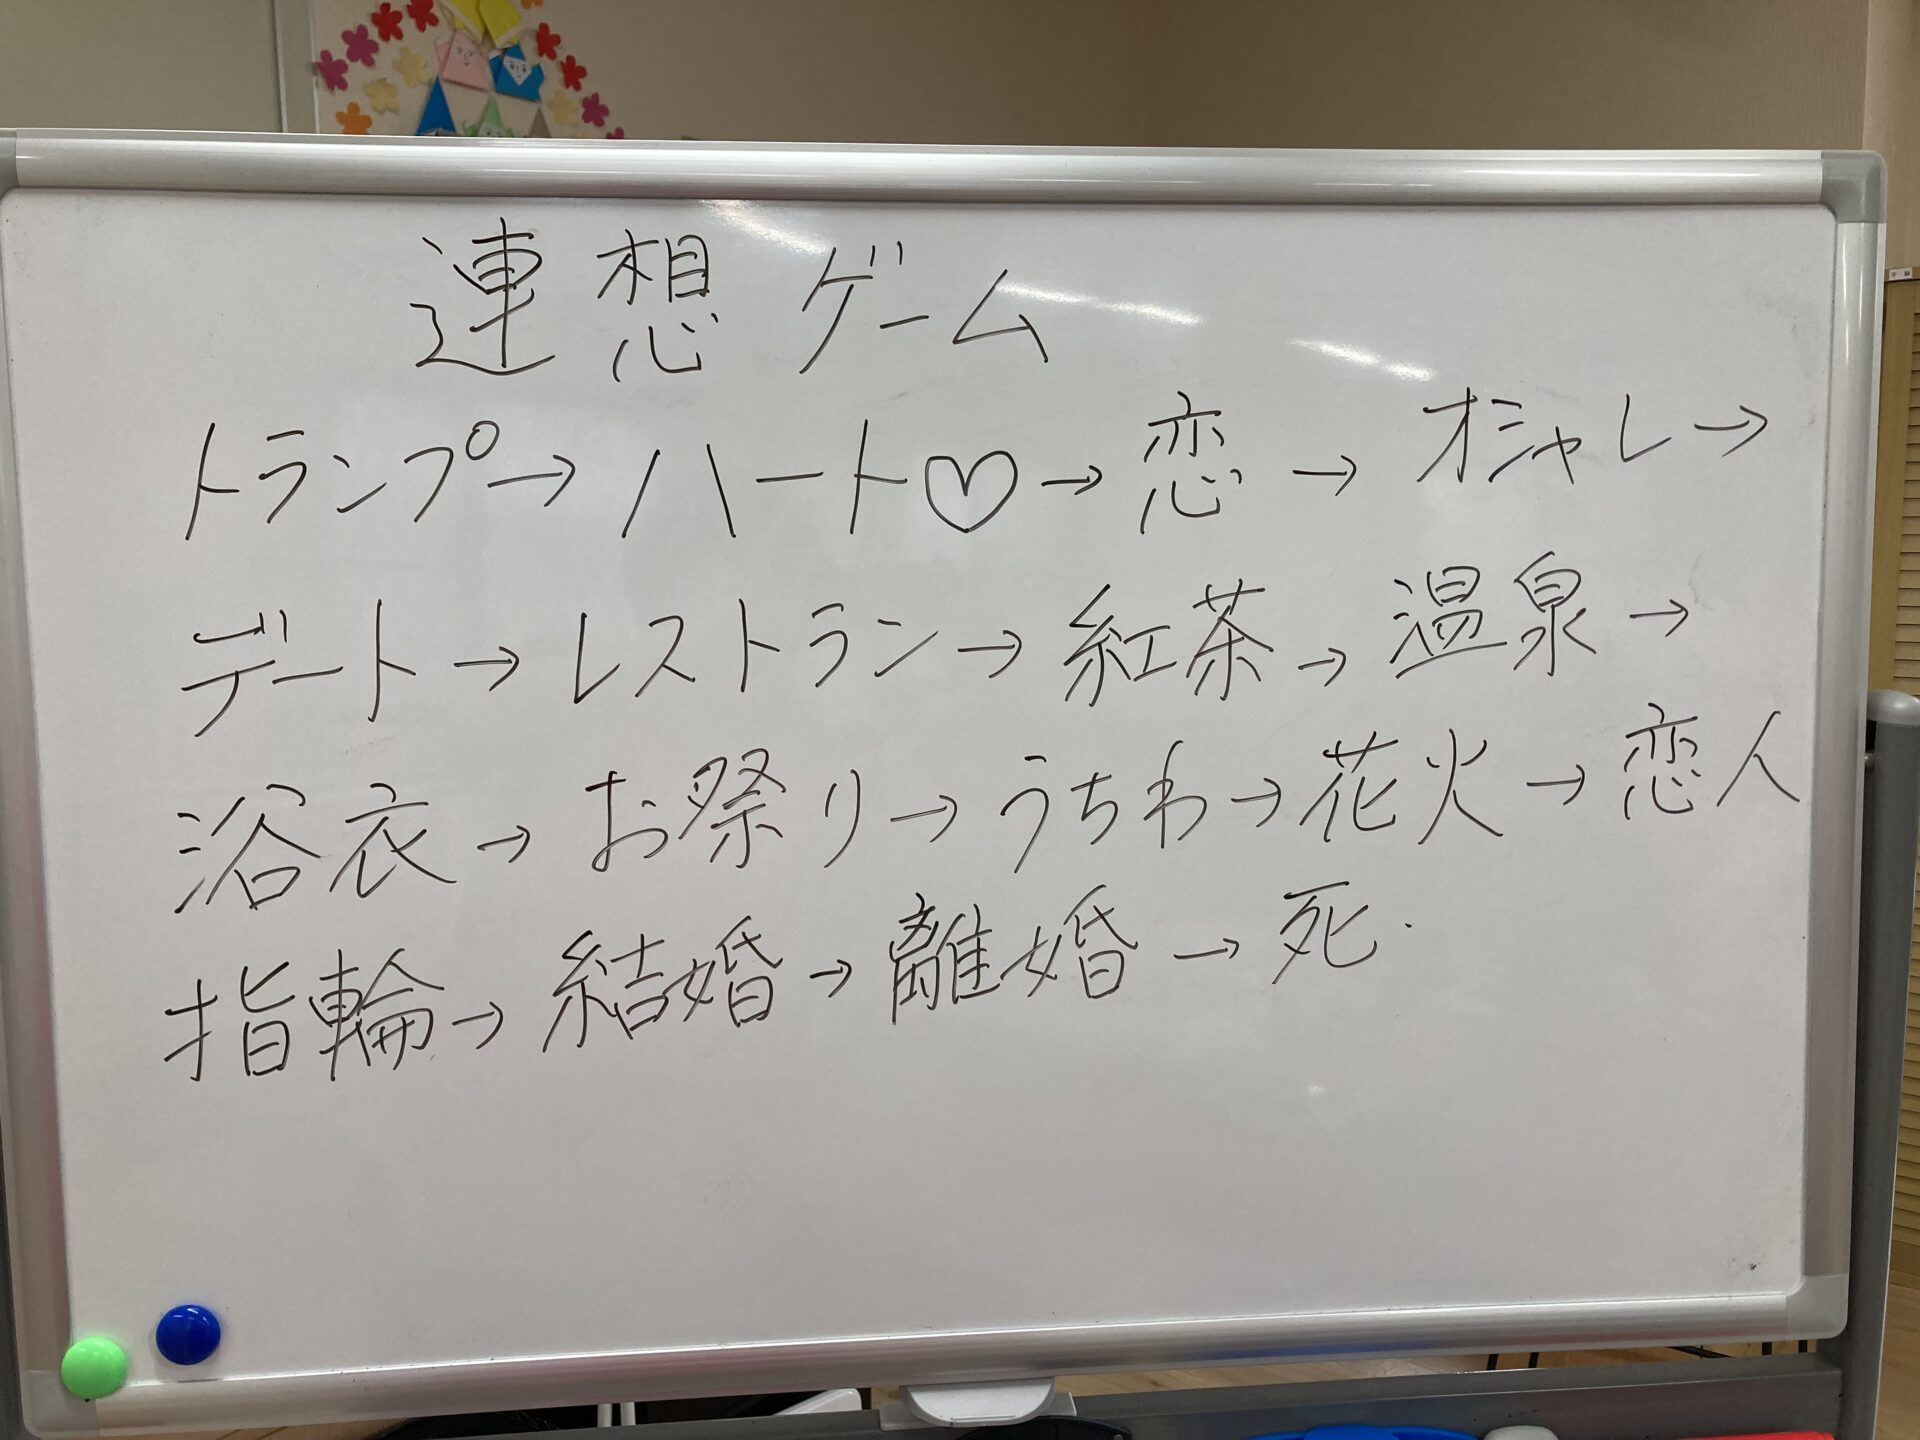 連想ゲーム
トランプ→ハート♡→恋→オシャレ→
デート→レストラン→紅茶→温泉→
浴衣→お祭り→うちわ→花火→恋人
指輪→結婚→離婚→死.